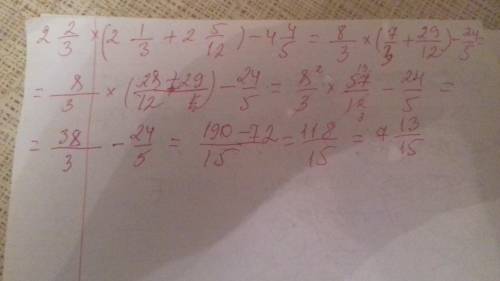 2 2/3 × (2 1/3 + 2 5/12) - 4 4/5 = 8/3 × (7/3 + 29/12) - 24/5
= 8/3 × (28+29/12) - 24/5 = 8²/3 × 57¹⁹/12₃ - 24/5 =
= 38/3 - 24/5 = 190-72/15 = 118/15 = 7 13/15